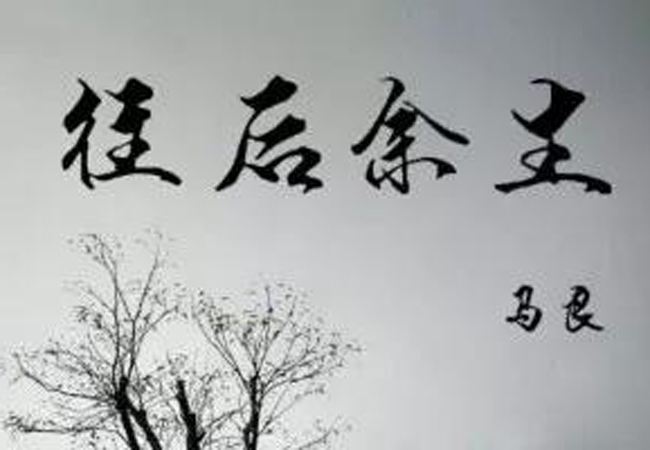 往后余生
马良